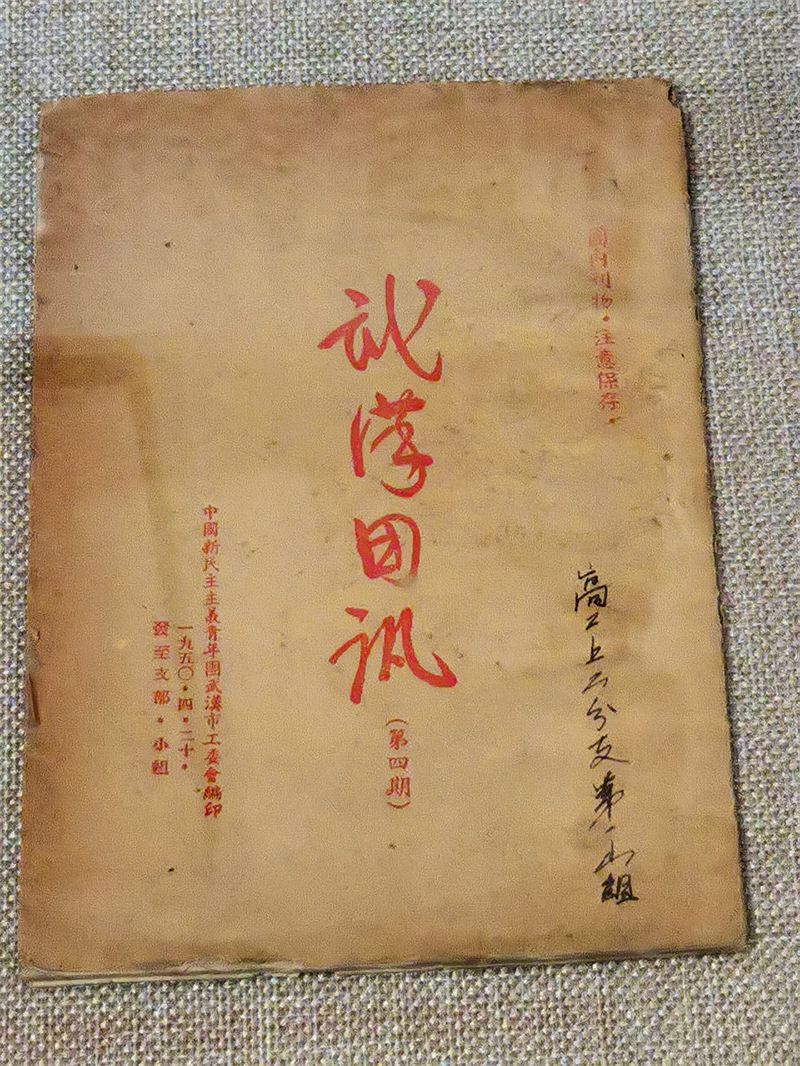 團內刊物·注意保存·
武漢团訊
(第四期)
中國新民主主義青年團武漢市工委會編印
一九五〇·四·二十·
發至支部·小組
高工上二分支第一小組